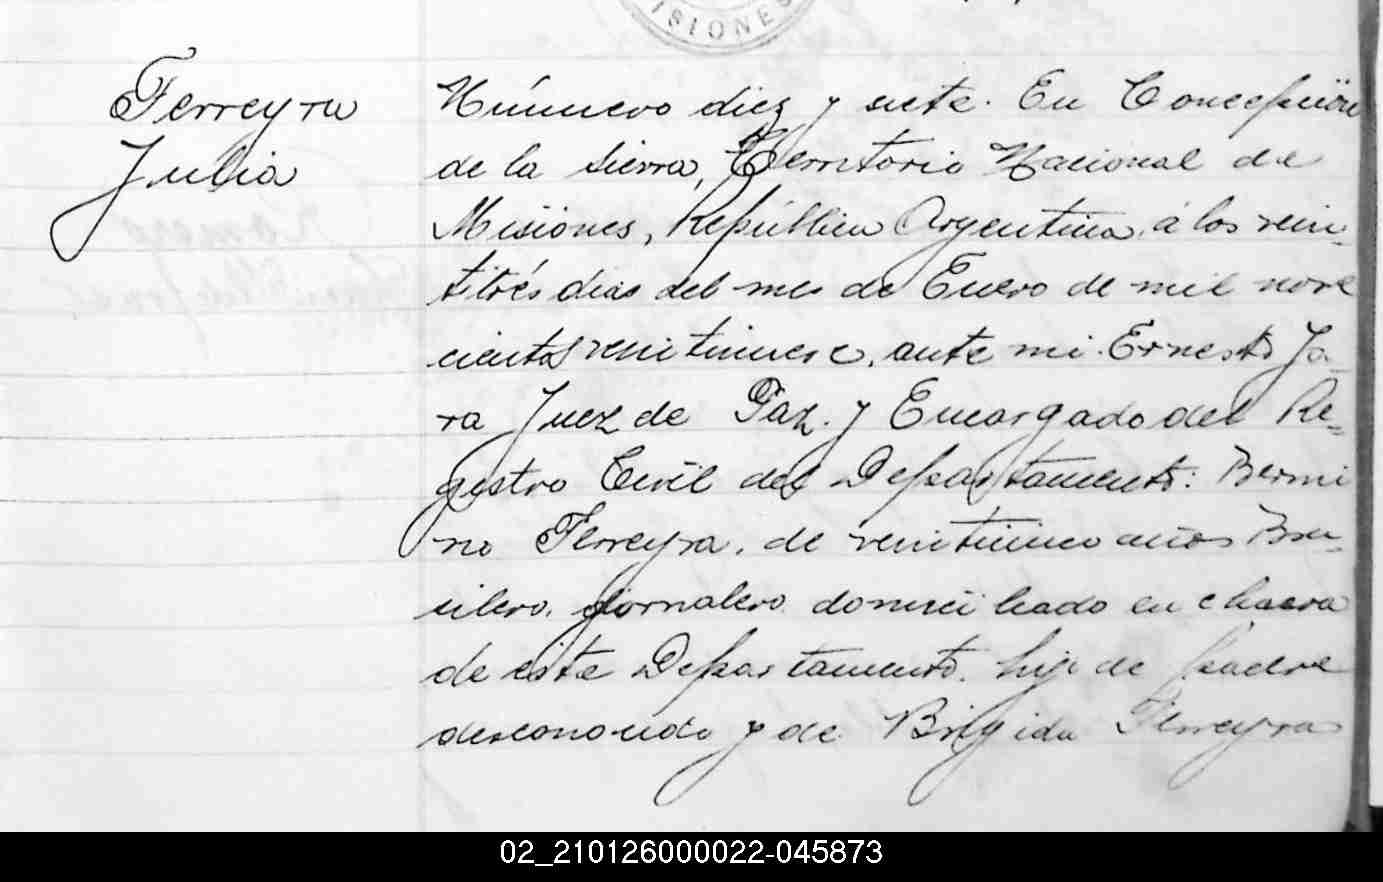 ISIONES
Ferreyra
Julia
Número diez y siete. En Concepción
de la Sierra, Territorio Nacional de
Misiones, República Argentina, á los vein-
titrés dias del mes de Enero de mil nove
cientos veintinueve, ante mi. Ernesto Ja-
ra Juez de Paz. y Encargado del Re-
gistro Civil del Departamento: Bermi
no Ferreyra, de veinticinco años Bra-
silero, jornalero domiciliado en chacra
de este Departamento. hijo de padre
desconocido y de Brigida Ferreyra
02_210126000022-045873